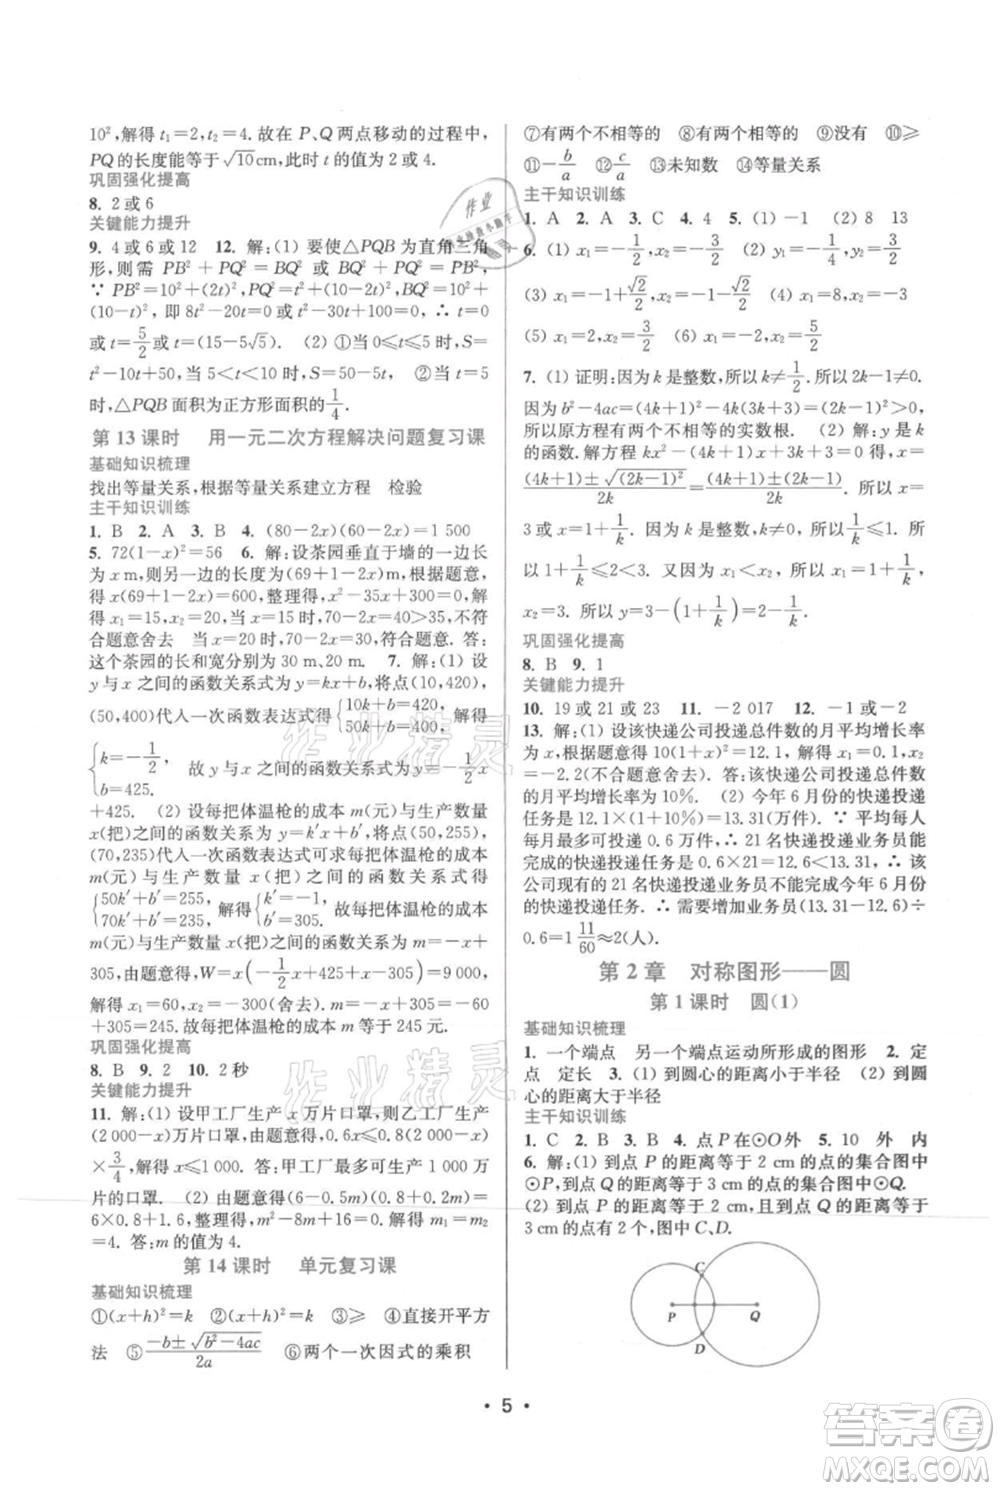 10²,解得 t₁=2,t₂=4.故在 P、Q 两点移动的过程中,
PQ 的长度能等于√10 cm,此时 t 的值为 2 或 4.
巩固强化提高
8. 2 或 6
关键能力提升
9. 4 或 6 或 12 12. 解:(1) 要使△PQB 为直角三角
形,则需 PB²+PQ²=BQ² 或 PQ²+BQ²=PB².
∵ PB²=10²+(2t)²,BQ²=10²+(20-t)²,PQ²=
(10-t)²,即 8t²-20t=0 或 2t²-30t+100=0,∴ t=0
或 t=5/2 或 t=(15-5√5). (2) ①当 0⩽t⩽5 时,S=
t²-10t+50,当 5<t<10 时,S=50-5t, ②当 t=5
时,△PQB 面积为正方形面积的 1/4.
第 13 课时 用一元二次方程解决问题复习课
基础知识梳理
找出等量关系,根据等量关系建立方程 检验
主干知识训练
1. B 2. A 3. B 4. (80-2x)(60-2x)=1 500
5. 72(1-x)²=56 6. 解:设茶园垂直于墙的一边长
为 x m,则另一边的长度为(69+1-2x)m,根据题意,
得 x(69+1-2x)=600,整理,得 x²-35x+300=0,解
得 x₁=15,x₂=20,当 x=15 时,70-2x=40>35,不符
合题意舍去 当 x=20 时,70-2x=30,符合题意.答:
这个茶园的长和宽分别为 30 m、20 m. 7. 解:(1) 设
y 与 x 之间的函数关系式为 y=kx+b,把(10,420),
(50,400)代入一次函数表达式得{10k+b=420, 50k+b=400,解得
{k=-1/2, b=425. 故 y 与 x 之间的函数关系式为 y=-1/2 x
+425. (2) 设每把体温枪的成本 m(元)与生产数量
x(把)之间的函数关系式为 y=k′x+b′,将(50,255),
(70,235)代入一次函数表达式可求每把体温枪的成本
{50k′+b′=255, 70k′+b′=235,解得{k′=-1, b′=305.故每把体温枪的成本
m(元)与生产数量 x(把)之间的函数关系式为 m=-x
+305,由题意得,W=x(-1/2 x+425+x-305)=9 000,
解得 x₁=60,x₂=-300(舍去). 故每把体温枪的成本
m(=-60
+305=245.故每把体温枪的成本 m 等于 245 元.
巩固强化提高
8. B 9. 2 10. 2 秒
关键能力提升
11. 解:(1) 设甲工厂生产 x 万片口罩,则乙工厂生产
(2 000-x)万片口罩,由题意得,0.6x⩽0.8(2 000-x)
×3/4,解得 x⩽1 000. 答:甲工厂最多可生产 1 000 万
片的口罩. (2) 由题意得(6-0.5m)(0.8+0.2m)=
6×0.8+1.6,整理得,m²-8m+16=0.解得 m₁=m₂
=4. 答:m 的值为 4.
第 14 课时 单元复习课
基础知识梳理
①(x+h)²=k ②(x+h)²=k ③⩾ ④直接开平方
法 ⑤(-b±√(b²-4ac))/2a ⑥两个一次因式的乘积
⑦有两个不相等的 ⑧两个相等的 ⑨没有 ⑩⩾
⑪-b/a ⑫c/a ⑬未知数 ⑭等量关系
主干知识训练
1. A 2. A 3. C 4. (1) -1 (2) 8 13
6. (1) x₁=-1/2,x₂=3/2 (2) y₁=-1/4,y₂=1/2
(3) x₁=-1+√2/2,x₂=-1-√2/2 (4) x₁=8,x₂=-3
(5) x₁=-2,x₂=3/2 (6) x₁=-2,x₂=1/2
7. (1) 证明:因为 k 是整数,所以 k≠1/2.所以 2k-1≠0.
因为 b²-4ac=(4k+1)²-4k(3k+3)=(2k-1)²>0,
所以原方程有两个不相等的实数根. (2) 解:y 是 k
的函数.解方程 kx²-(4k+1)x+3k+3=0,得 x=
((4k+1)±√(2k-1)²)/2k=((4k+1)±(2k-1))/2k. 所以 x=
3 或 x=1+1/k.因为 k 是整数,所以 1/k⩽1. 所
以 1+1/k⩽2<3.因为 x₁<x₂,所以 x₁=1+1/k,
x₂=3. 所以 y=3-(1+1/k)=2-1/k.
巩固强化提高
8. B 9. 1
关键能力提升
10. 19 或 21 或 23 11. -2 017 12. -1 或 -2
13. 解:(1) 设该快递公司投递总件数的月平均增长率
为 x,根据题意得 10(1+x)²=12.1,解得 x₁=0.1,x₂
=-2.2(不符合题意). 答:该快递公司投递总件数
的月平均增长率为 10%. (2) 今年 6 月份的快递投递
任务是 12.1×(1+10%)=13.31.∵ 平均每人每
月最多可投递 0.6 万件,∴ 21 名快递投递业务员能
完成的快递投递任务 0.6×21=12.6<13.31,∴ 该
公司现有的 21 名快递投递业务员不能完成今年 6 月份
的投递任务.∴ 需要增加业务员(13.31-12.6)÷
0.6=1 11/60≈2(人).
第 2 章 对称图形——圆
第 1 课时 圆(1)
基础知识梳理
1. 一个端点 另一个端点运动所形成的图形 2. 定
点 定长 3. (1) 到圆心的距离小于半径 (2) 到圆心
的距离大于半径
主干知识训练
1. C 2. B 3. B 4. 点 P 在⊙O 外 5. 10 外 内
6. 解:(1) 到点 P 的距离等于 2 cm 的点的集合图中
⊙P,到点 Q 的距离等于 3 cm 的点的集合图中⊙Q.
(2) 到点 P 的距离等于 2 cm,且到点 Q 的距离等于
3 cm 的点有 2 个,图中 C、D.
C
P
Q
D
• 5 •
作业精灵
作业精灵
答案圈
MXQE.COM